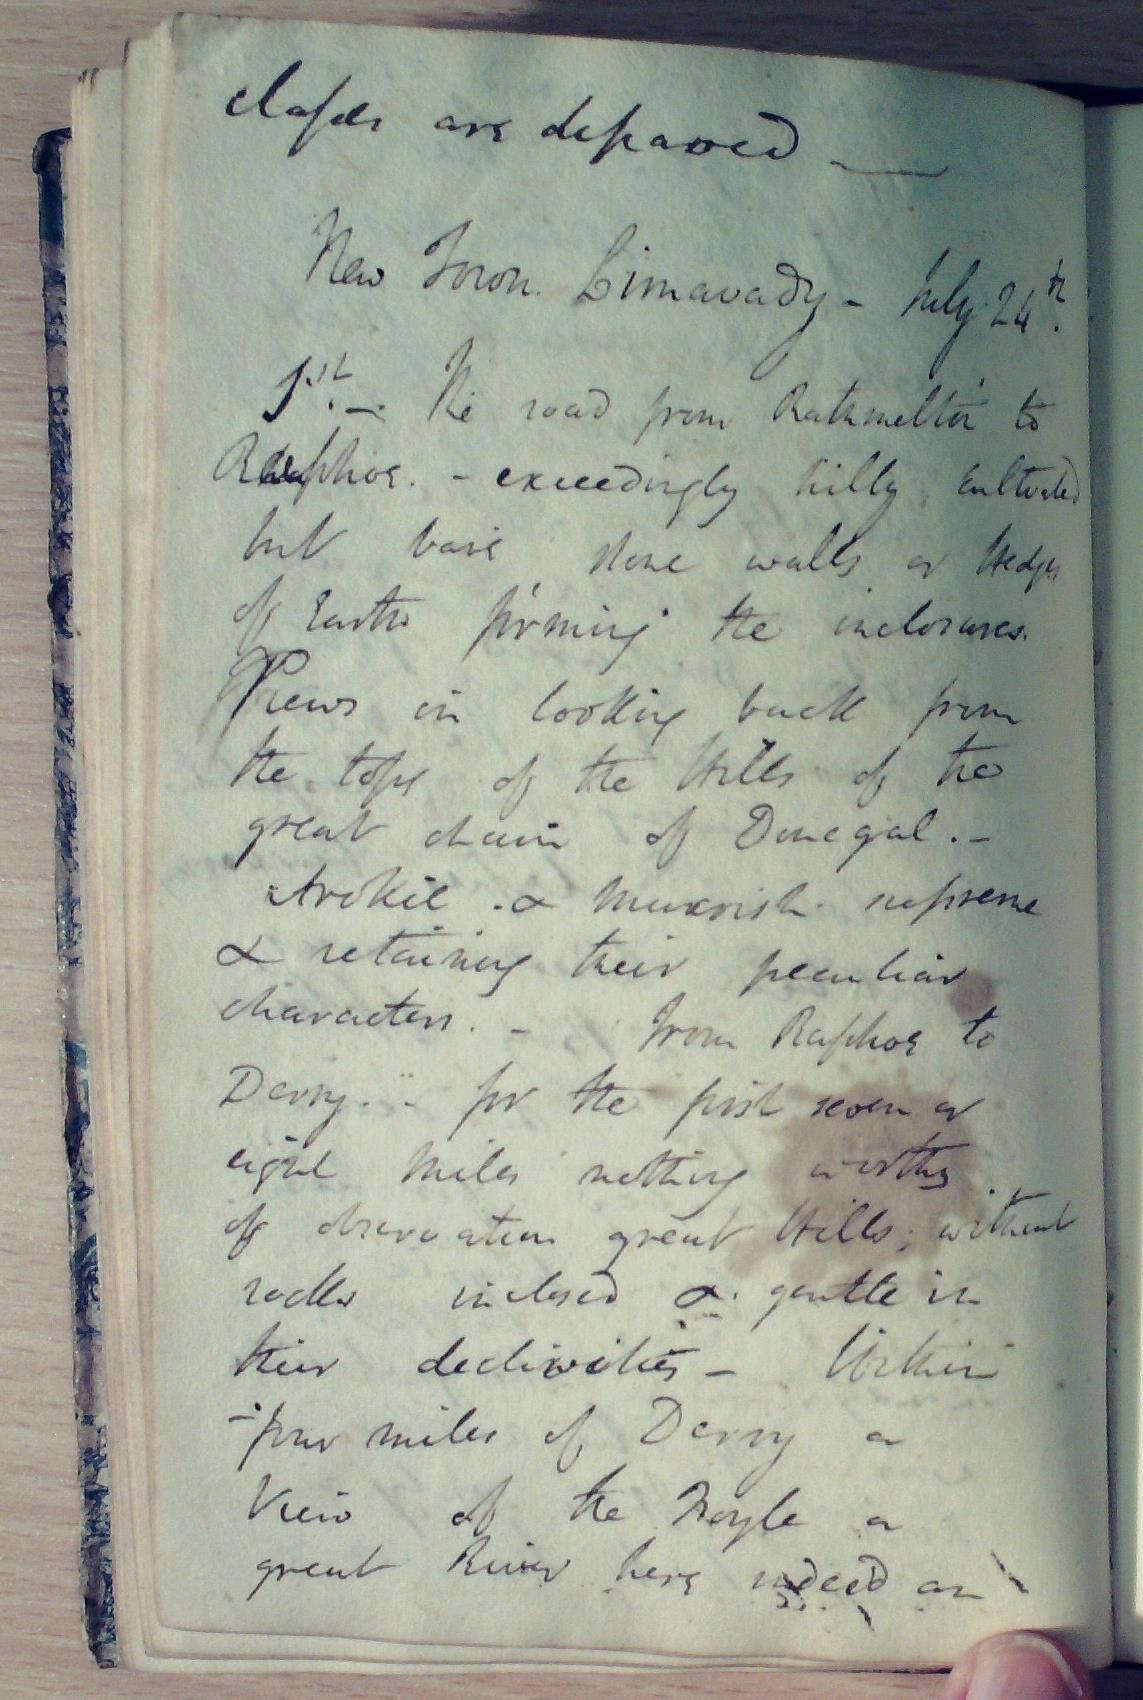 classes are depraved —
New Town Limavady - July 24th.
1st. - The road from Rathmelton to
Raphoe. - exceedingly hilly, cultivated
but bare stone walls or Hedges
of Earth forming the inclosures.
Views in looking back from
the tops of the Hills of the
great chain of Donegal. -
Arokil . & Muckish supreme
& retaining their peculiar
characters. - From Raphoe to
Derry. - for the first seven or
eight Miles nothing worthy
of observation great Hills, without
rocks inclosed & gentle in
their declivities - Within
four miles of Derry a
View of the Foyle a
great River here indeed an